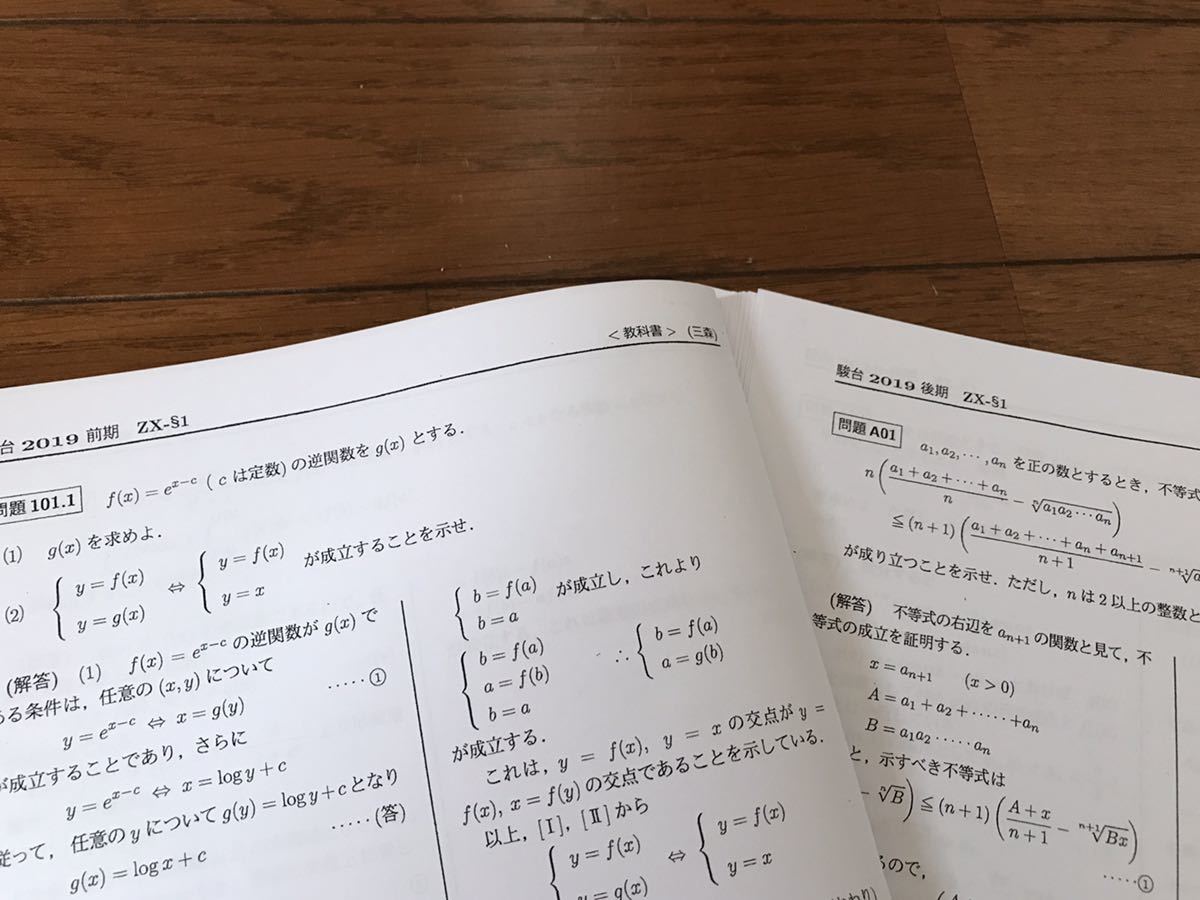 ＜教科書＞ (三森)
台 2019 前期 ZX-§1
問題 101.1 f(x) = e^{x−c} ( c は定数) の逆関数を g(x) とする．
(1) g(x) を求めよ．
(2) { y = f(x) y = g(x) ⇔ { y = f(x) y = x が成立することを示せ．
(解答) (1) f(x) = e^{x−c} の逆関数が g(x) で
ある条件は，任意の (x, y) について
y = e^{x−c} ⇔ x = g(y) ·····①
が成立することであり，さらに
y = e^{x−c} ⇔ x = log y + c
従って，任意の y について g(y) = log y + c となり
g(x) = log x + c ·····(答)
{ b = f(a) b = a が成立し，これより
{ b = f(a) a = f(b) b = a ∴ { b = f(a) a = g(b)
が成立する．
これは，y = f(x), y = x の交点が y =
f(x), x = f(y) の交点であることを示している．
以上，[Ⅰ]，[Ⅱ] から
{ y = f(x) y = g(x) ⇔ { y = f(x) y = x
駿台 2019 後期 ZX-§1
問題 A01 a₁, a₂, ···, aₙ を正の数とするとき，不等式
n ( (a₁ + a₂ + ··· + aₙ)/n − ⁿ√(a₁a₂···aₙ) )
≦ (n+1) ( (a₁ + a₂ + ··· + aₙ + aₙ₊₁)/(n+1) − ⁿ⁺¹√a
が成り立つことを示せ．ただし，n は 2 以上の整数と
(解答) 不等式の右辺を aₙ₊₁ の関数と見て，不
等式の成立を証明する．
x = aₙ₊₁ (x > 0)
A = a₁ + a₂ + ····· + aₙ
B = a₁a₂ ····· aₙ
と，示すべき不等式は
− ⁿ√B ) ≦ (n+1) ( (A + x)/(n+1) − ⁿ⁺¹√(Bx) )
·····①
るので，